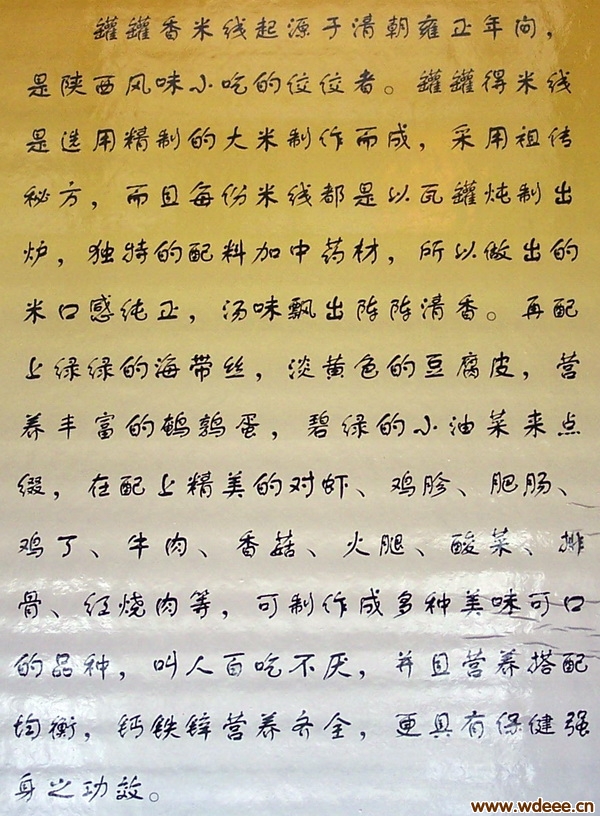 罐罐香米线起源于清朝雍正年间，
是陕西风味小吃的佼佼者。罐罐得米线
是选用精制的大米制作而成，采用祖传
秘方，而且每份米线都是以瓦罐炖制出
炉，独特的配料加中药材，所以做出的
米口感纯正，汤味飘出阵阵清香。再配
上绿绿的海带丝，淡黄色的豆腐皮，营
养丰富的鹌鹑蛋，碧绿的小油菜来点
缀，在配上精美的对虾、鸡胗、肥肠、
鸡丁、牛肉、香菇、火腿、酸菜、排
骨、红烧肉等，可制作成多种美味可口
的品种，叫人百吃不厌，并且营养搭配
均衡，钙铁锌营养齐全，更具有保健强
身之功效。
www.wdeee.cn